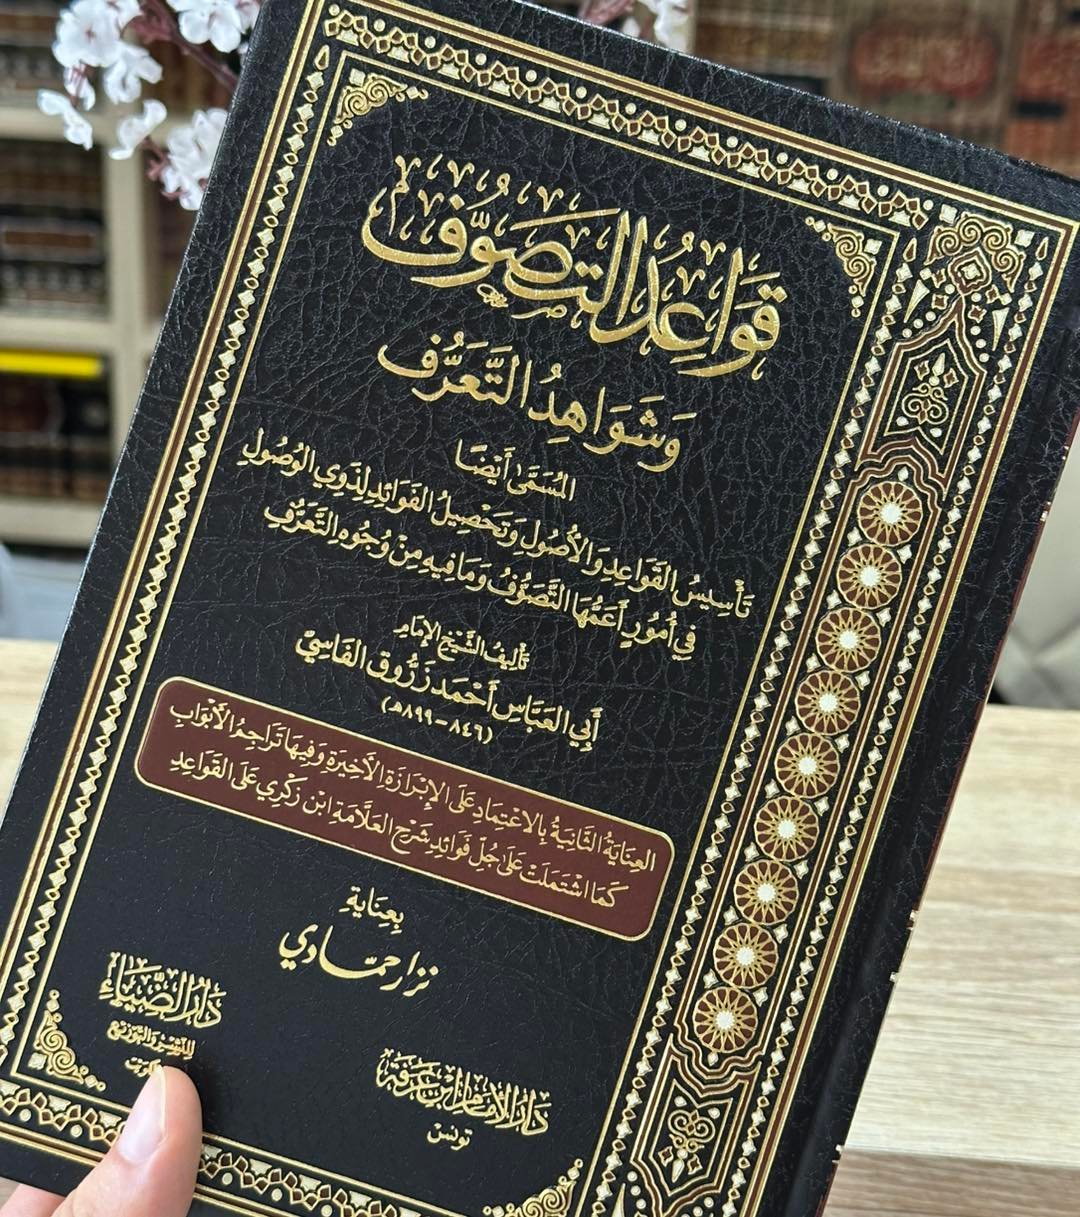 قَوَاعِدُ التَّصَوُّفِ
وَشَوَاهِدُ التَّعَرُّفِ
المُسَمَّى أَيْضًا
تَأْسِيسُ القَوَاعِدِ وَالأُصُولِ وَتَحْصِيلُ الفَوَائِدِ لِذَوِي الوُصُولِ
فِي أُمُورٍ أَعَمُّهَا التَّصَوُّفُ وَمَا فِيهِ مِنْ وُجُوهِ التَّعَرُّفِ
تَأْلِيفُ الشَّيْخِ الإِمَامِ
أَبِي العَبَّاسِ أَحْمَد زَرُّوق الفَاسِيِّ
(٨٤٦-٨٩٩هـ)
العِنَايَةُ الثَّانِيَةُ بِالاعْتِمَادِ عَلَى الإِبْرَازَةِ الأَخِيرَةِ وَفِيهَا تَرَاجِمُ الأَبْوَابِ
كَمَا اشْتَمَلَتْ عَلَى جُلِّ فَوَائِدِ شَرْحِ العَلَّامَةِ ابْنِ زَكْرِي عَلَى القَوَاعِدِ
بِعِنَايَةِ
نزار حمّادي
دَارُ الضِّيَاءِ
لِلنَّشْرِ وَالتَّوْزِيعِ
دَارُ الإِمَامِ ابْنِ عَرَفَة
تونس